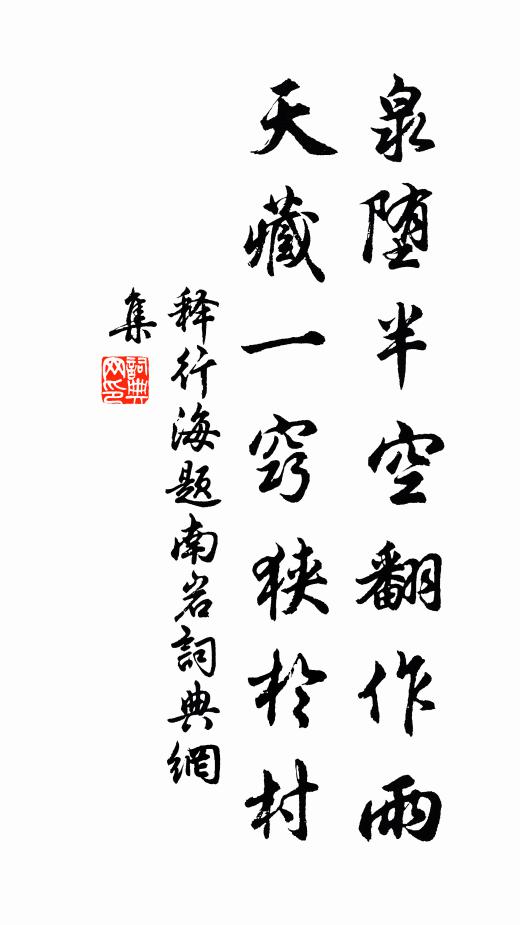 泉堕半空翻作雨
天藏一窍狭於村
释行海题南岩詞典網
集
詞典
网印